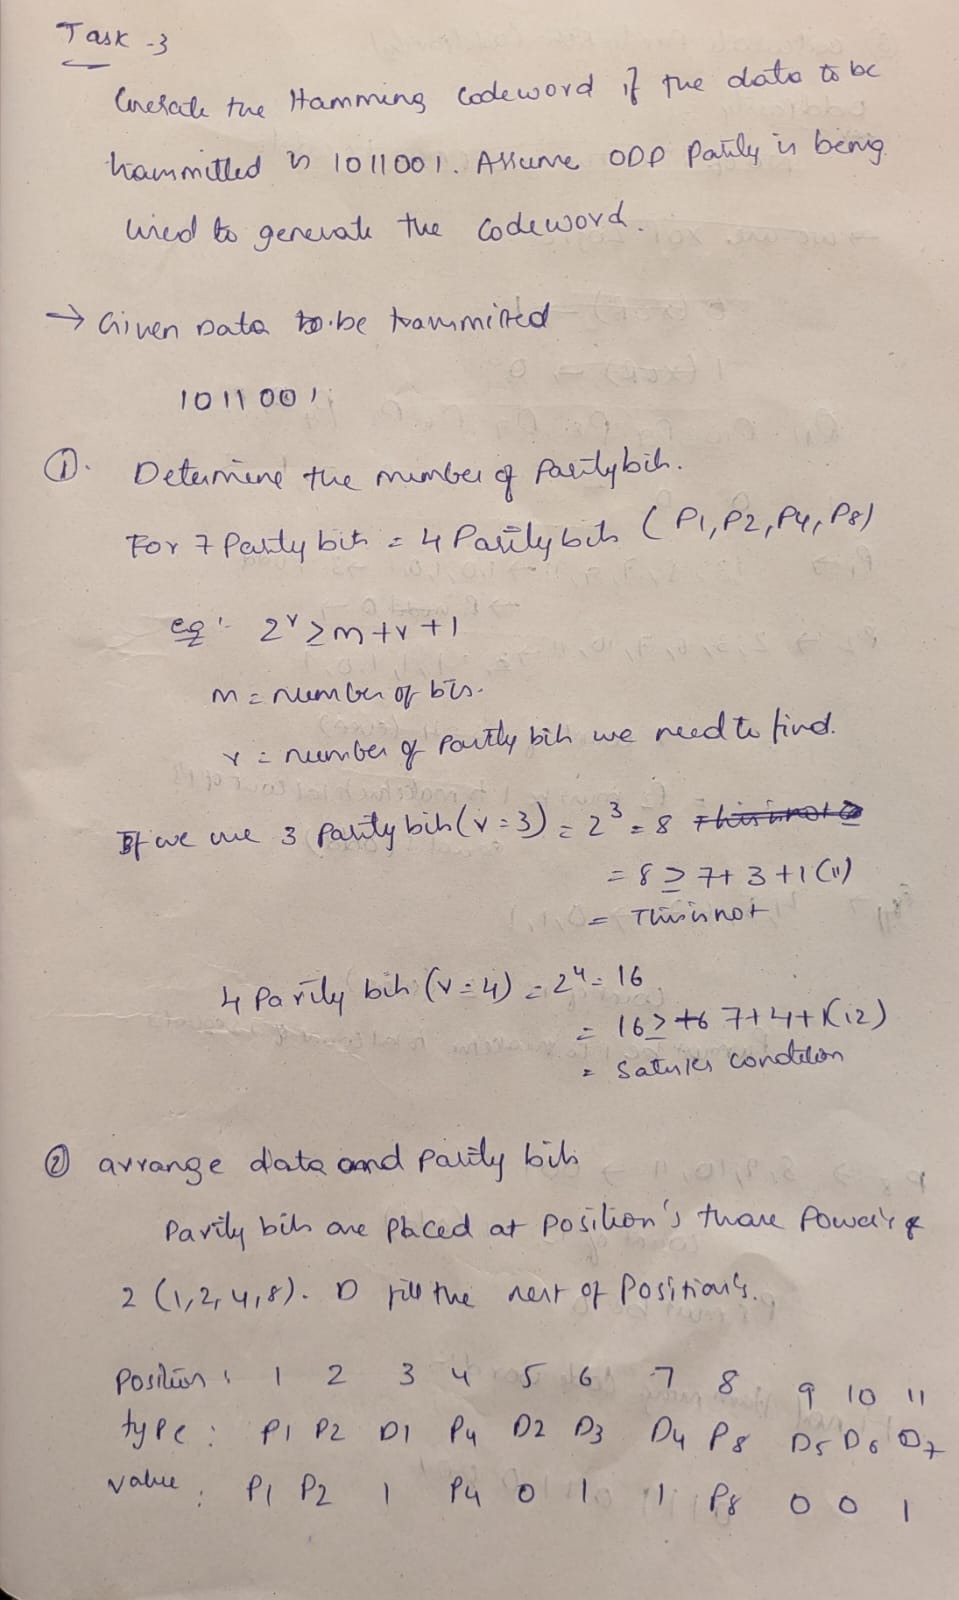 Task -3
Generate the Hamming codeword if the data to be
transmitted is 1011001. Assume ODD Parity is being
used to generate the codeword.
→ Given Data to be transmitted
1011001
①. Determine the number of Parity bits.
For 7 Parity bits = 4 Parity bits (P1, P2, P4, P8)
eq:- 2^r ≥ m + r + 1
m = number of bits.
r = number of Parity bits we need to find.
If we use 3 parity bits (r = 3) = 2^3 = 8
= 8 ≥ 7 + 3 + 1 (11)
= This is not
4 Parity bits (r = 4) = 2^4 = 16
= 16 ≥ 7 + 4 + 1 (12)
= Satisfies condition
② arrange data and Parity bits
Parity bits are placed at position's that are Power's of
2 (1, 2, 4, 8). D fill the rest of Position's.
Position : 1 2 3 4 5 6 7 8 9 10 11
type : P1 P2 D1 P4 D2 D3 D4 P8 D5 D6 D7
value : P1 P2 1 P4 0 1 1 P8 0 0 1